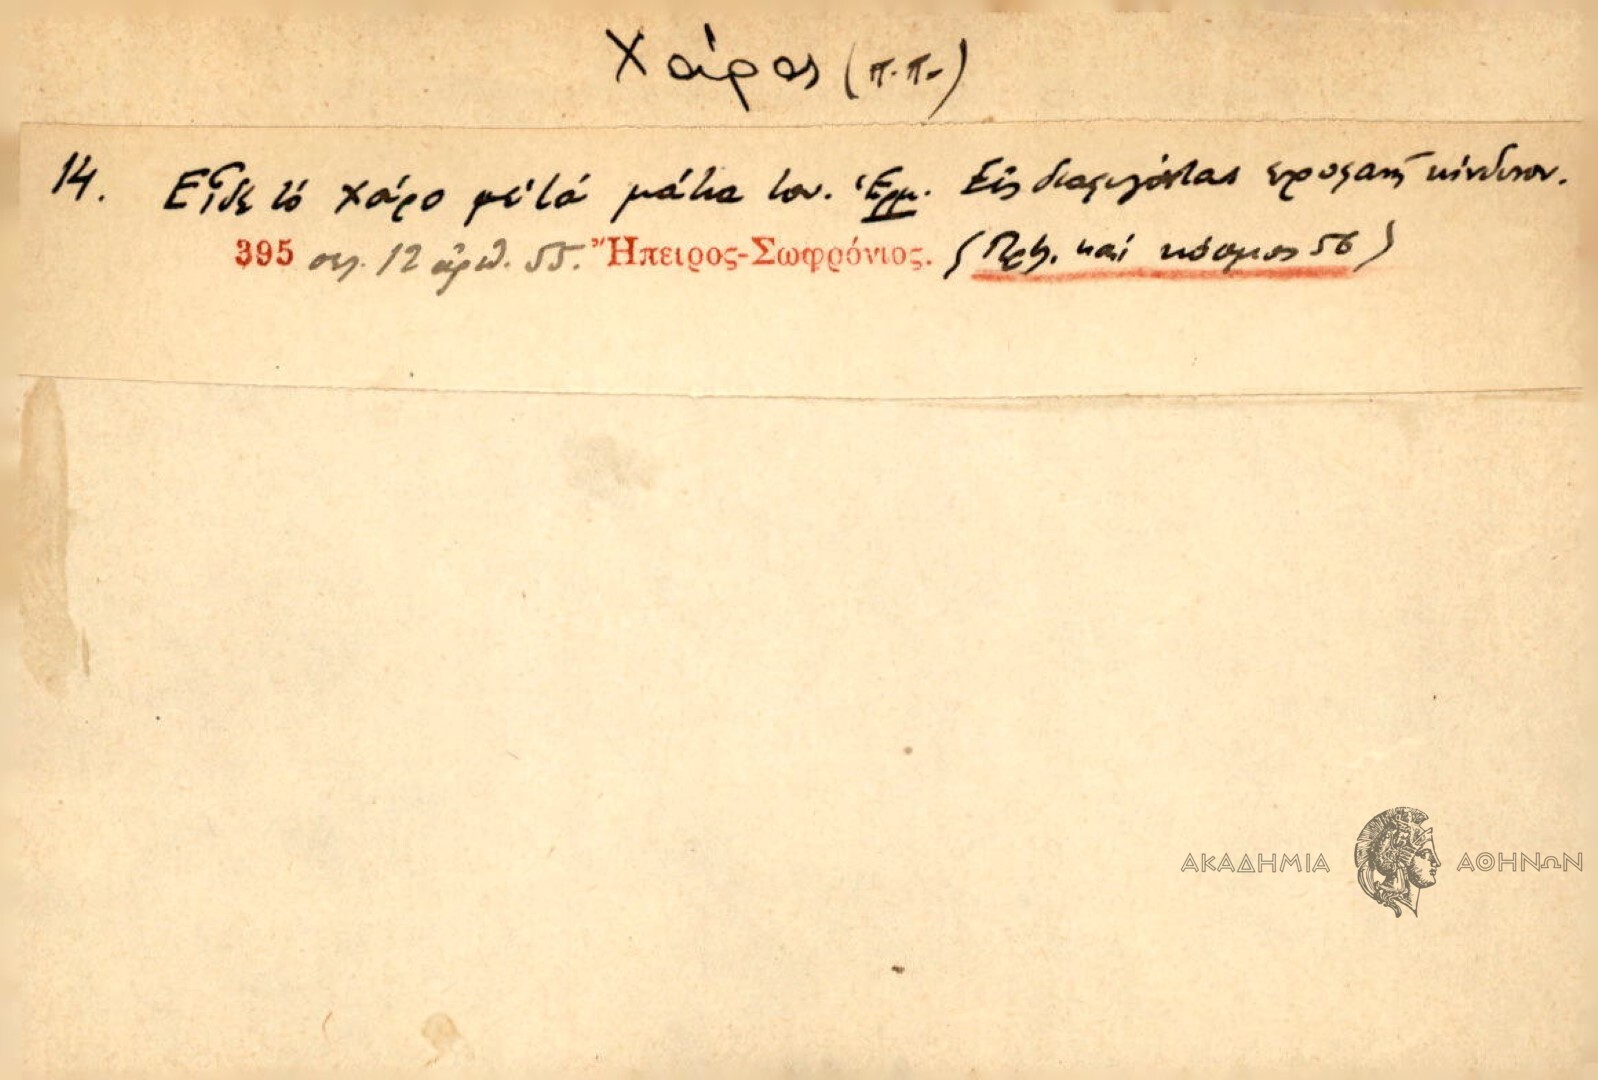 Χάρος (π.π.)
14. Εἶδε τὸ Χάρο μὲ τὰ μάτια του. Ἑρμ. Εἰς διαφυγόντας προφανῆ κίνδυνον.
395 σελ. 12 ἀριθ. 55. Ἤπειρος-Σωφρόνιος. ( καὶ κόσμος 56)
ΑΚΑΔΗΜΙΑ ΑΘΗΝΩΝ